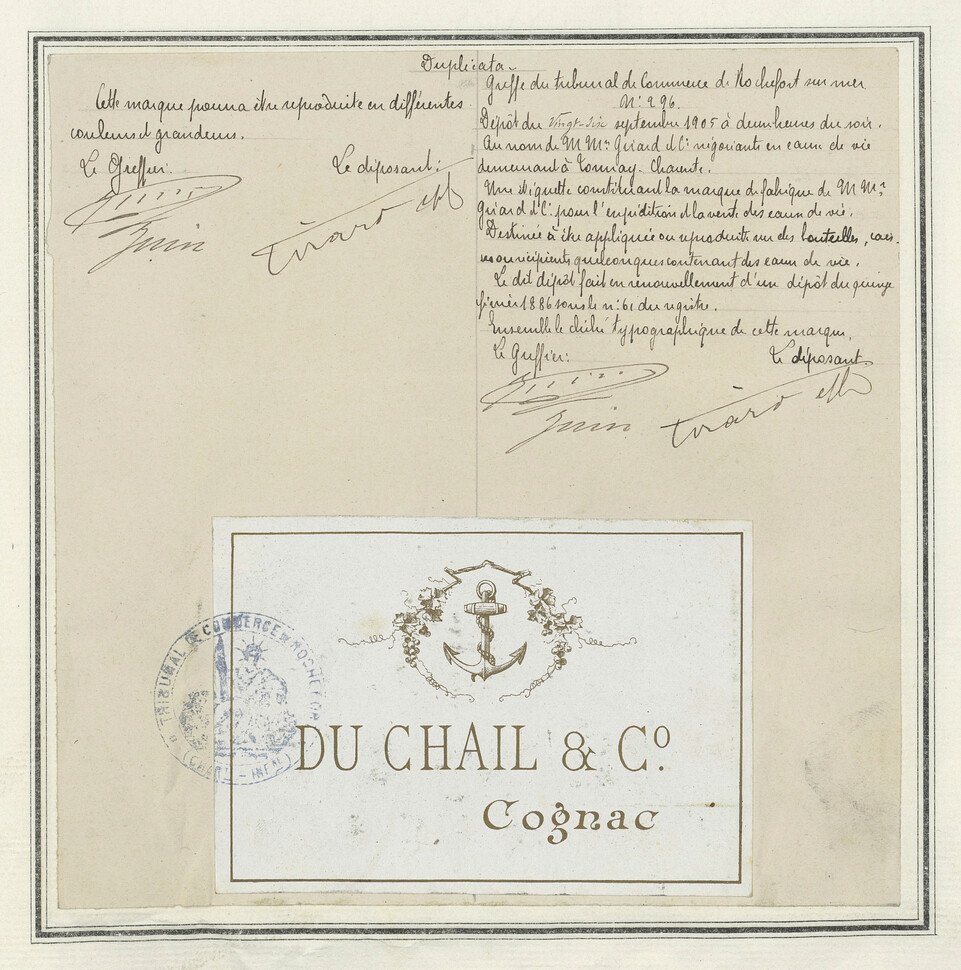 Duplicata
Cette marque pourra être reproduite en différentes
couleurs et grandeurs.
Le Greffier:
Le déposant:
Girard et Cie
Greffe du tribunal de Commerce de Rochefort sur mer
N° 296.
Dépôt du Vingt-six septembre 1905 à deux heures du soir.
Au nom de MMrs Girard et Cie négociants en eaux de vie
demeurant à Tonnay-Charente.
Une étiquette constituant la marque de fabrique de MMrs
Girard et Cie pour l'expédition et la vente des eaux de vie.
Destinée à être appliquée ou reproduite sur des bouteilles, cais-
ses ou récipients quelconques contenant des eaux de vie.
Le dit dépôt fait en renouvellement d'un dépôt du quinze
février 1886 sous le n° 61 du registre.
Ensemble le cliché typographique de cette marque.
Le Greffier:
Le déposant
Girard et Cie
TRIBUNAL DE COMMERCE DE ROCHEFORT
(CHARTE - INFRE)
DU CHAIL & Co.
Cognac